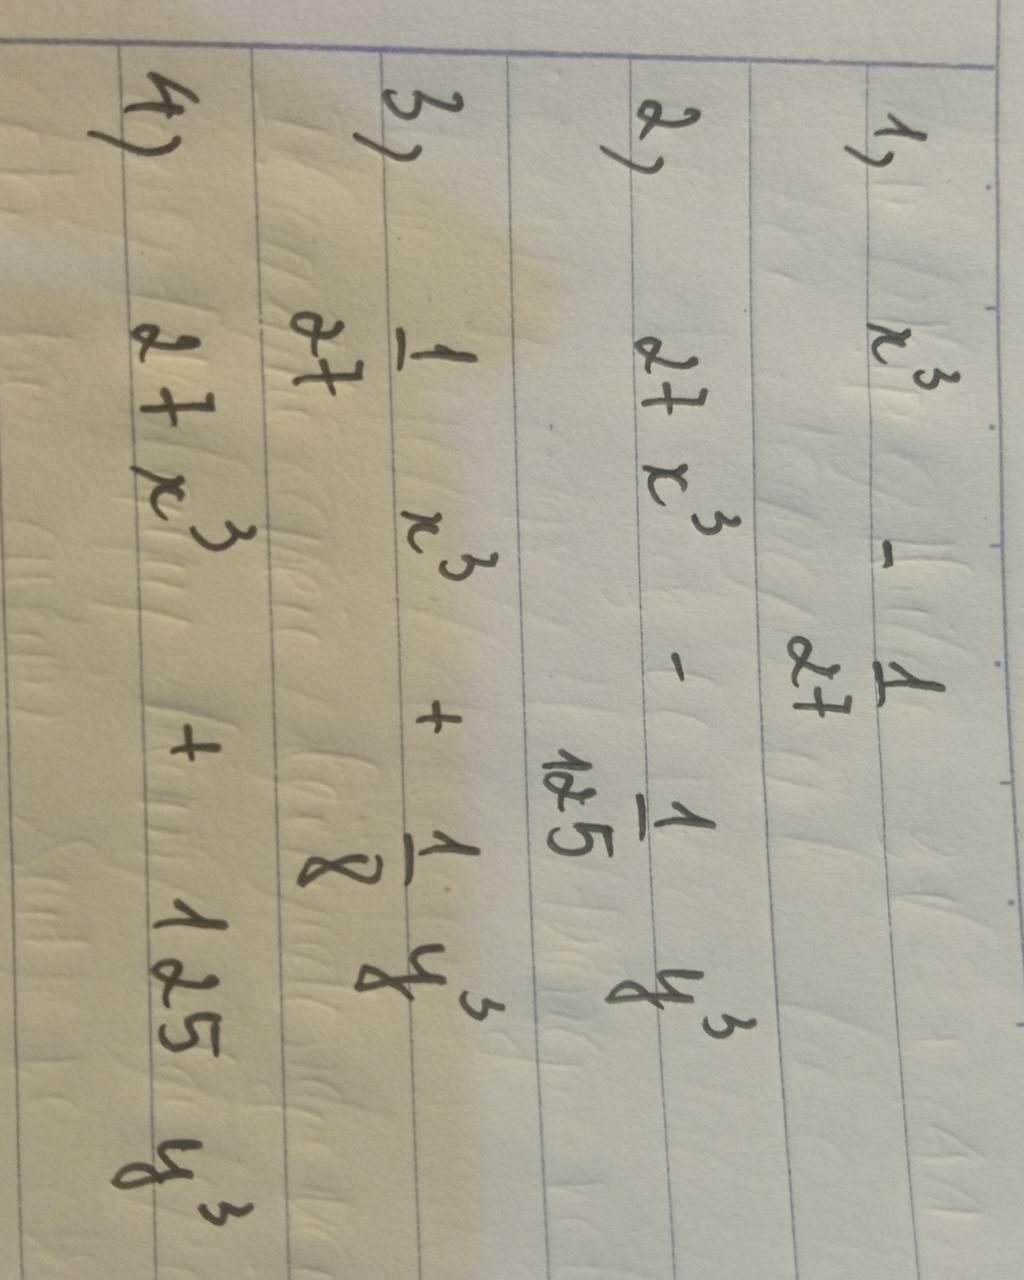 1, x³ - 1/27
2, 27x³ - 1/125 y³
3, 1/27 x³ + 1/8 y³
4, 27x³ + 125y³